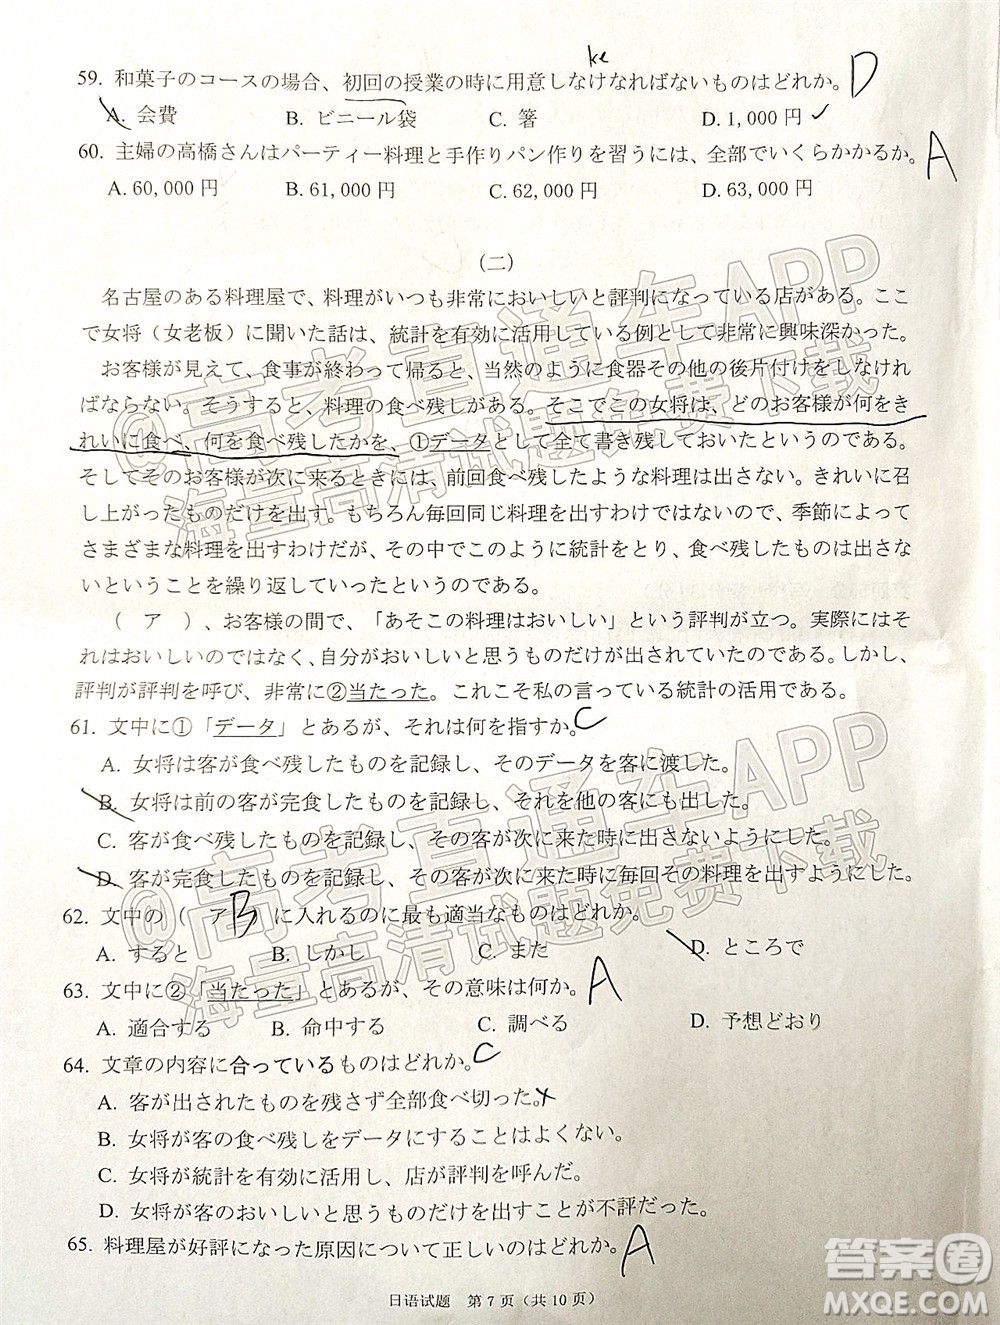 ke
59. 和菓子のコースの場合、初回の授業の時に用意しなければならないものはどれか。 D
A. 会費 B. ビニール袋 C. 箸 D. 1,000円
60. 主婦の高橋さんはパーティー料理と手作りパン作りを習うには、全部でいくらかかるか。 A
A. 60,000円 B. 61,000円 C. 62,000円 D. 63,000円
(二)
名古屋のある料理屋で、料理がいつも非常においしいと評判になっている店がある。ここ
で女将（女老板）に聞いた話は、統計を有効に活用している例として非常に興味深かった。
お客様が見えて、食事が終わって帰ると、当然のように食器その他の後片付けをしなけれ
ばならない。そうすると、料理の食べ残しがある。そこでこの女将は、どのお客様が何をき
れいに食べ、何を食べ残したかを、①データとして全て書き残しておいたというのである。
そしてそのお客様が次に来るときには、前回食べ残したような料理は出さない。きれいに召
し上がったものだけを出す。もちろん毎回同じ料理を出すわけではないので、季節によって
さまざまな料理を出すわけだが、その中でこのように統計をとり、食べ残したものは出さな
いということを繰り返していったというのである。
（ ア ）、お客様の間で、「あそこの料理はおいしい」という評判が立つ。実際にはそ
れはおいしいのではなく、自分がおいしいと思うものだけが出されていたのである。しかし、
評判が評判を呼び、非常に②当たった。これこそ私の言っている統計の活用である。
61. 文中に①「データ」とあるが、それは何を指すか。 C
A. 女将は客が食べ残したものを記録し、そのデータを客に渡した。
B. 女将は前の客が完食したものを記録し、それを他の客にも出した。
C. 客が食べ残したものを記録し、その客が次に来た時に出さないようにした。
D. 客が完食したものを記録し、その客が次に来た時に毎回その料理を出すようにした。
62. 文中の（ ア B に入れるのに最も適当なものはどれか。
A. すると B. しかし C. まだ D. ところで
63. 文中に②「当たった」とあるが、その意味は何か。 A
A. 適合する B. 命中する C. 調べる D. 予想どおり
64. 文章の内容に合っているものはどれか。 C
A. 客が出されたものを残さず全部食べ切った。
B. 女将が客の食べ残しをデータにすることはよくない。
C. 女将が統計を有効に活用し、店が評判を呼んだ。
D. 女将が客のおいしいと思うものだけを出すことが不評だった。
65. 料理屋が好評になった原因について正しいのはどれか。 A
日语试题 第7页（共10页）
@高考直通车APP
海量高清试题免费下载
@高考直通车APP
海量高清试题免费下载
答案圈
MXQE.COM